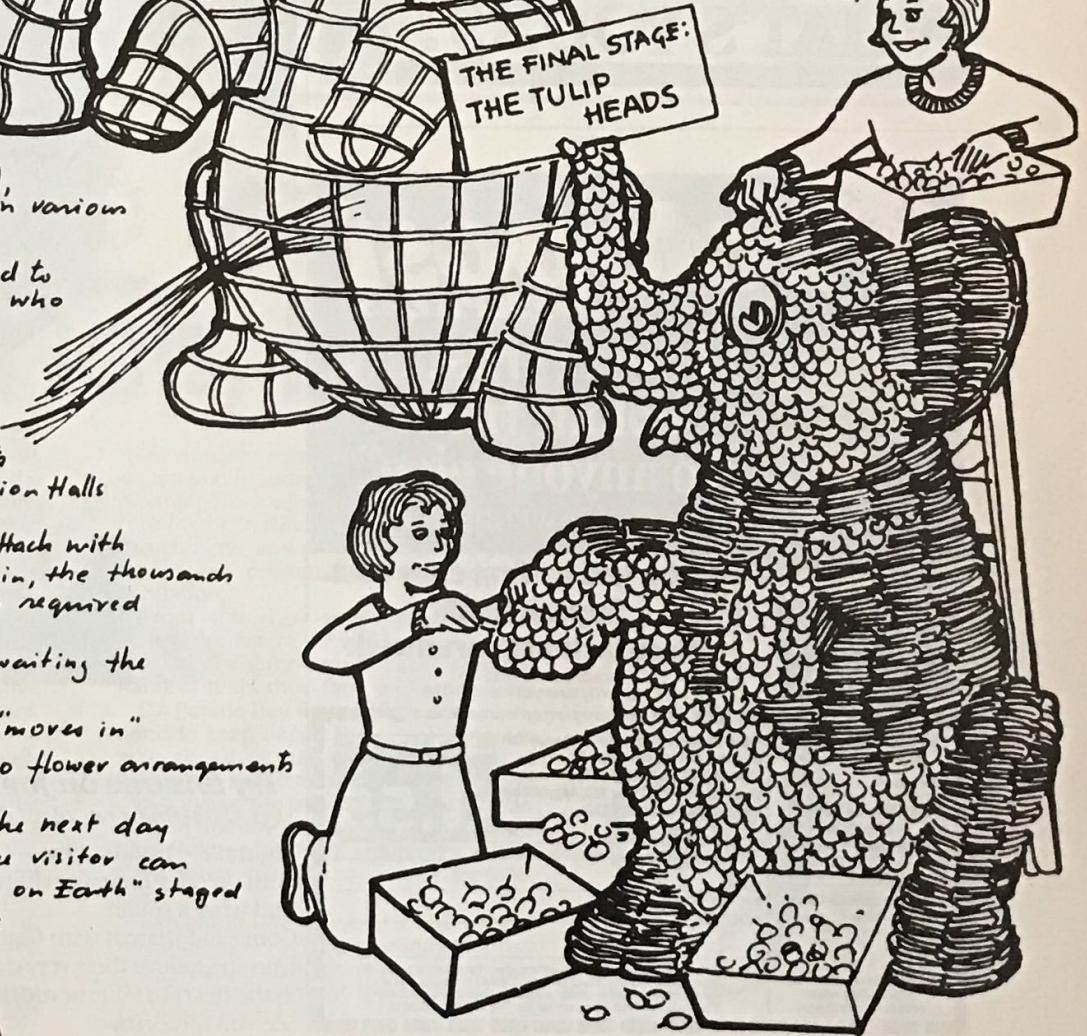 THE FINAL STAGE:
THE TULIP
HEADS
various
to
who
Halls
with
in, the thousands
required
waiting the
"moves in"
flower arrangements
next day
visitor can
on Earth" staged